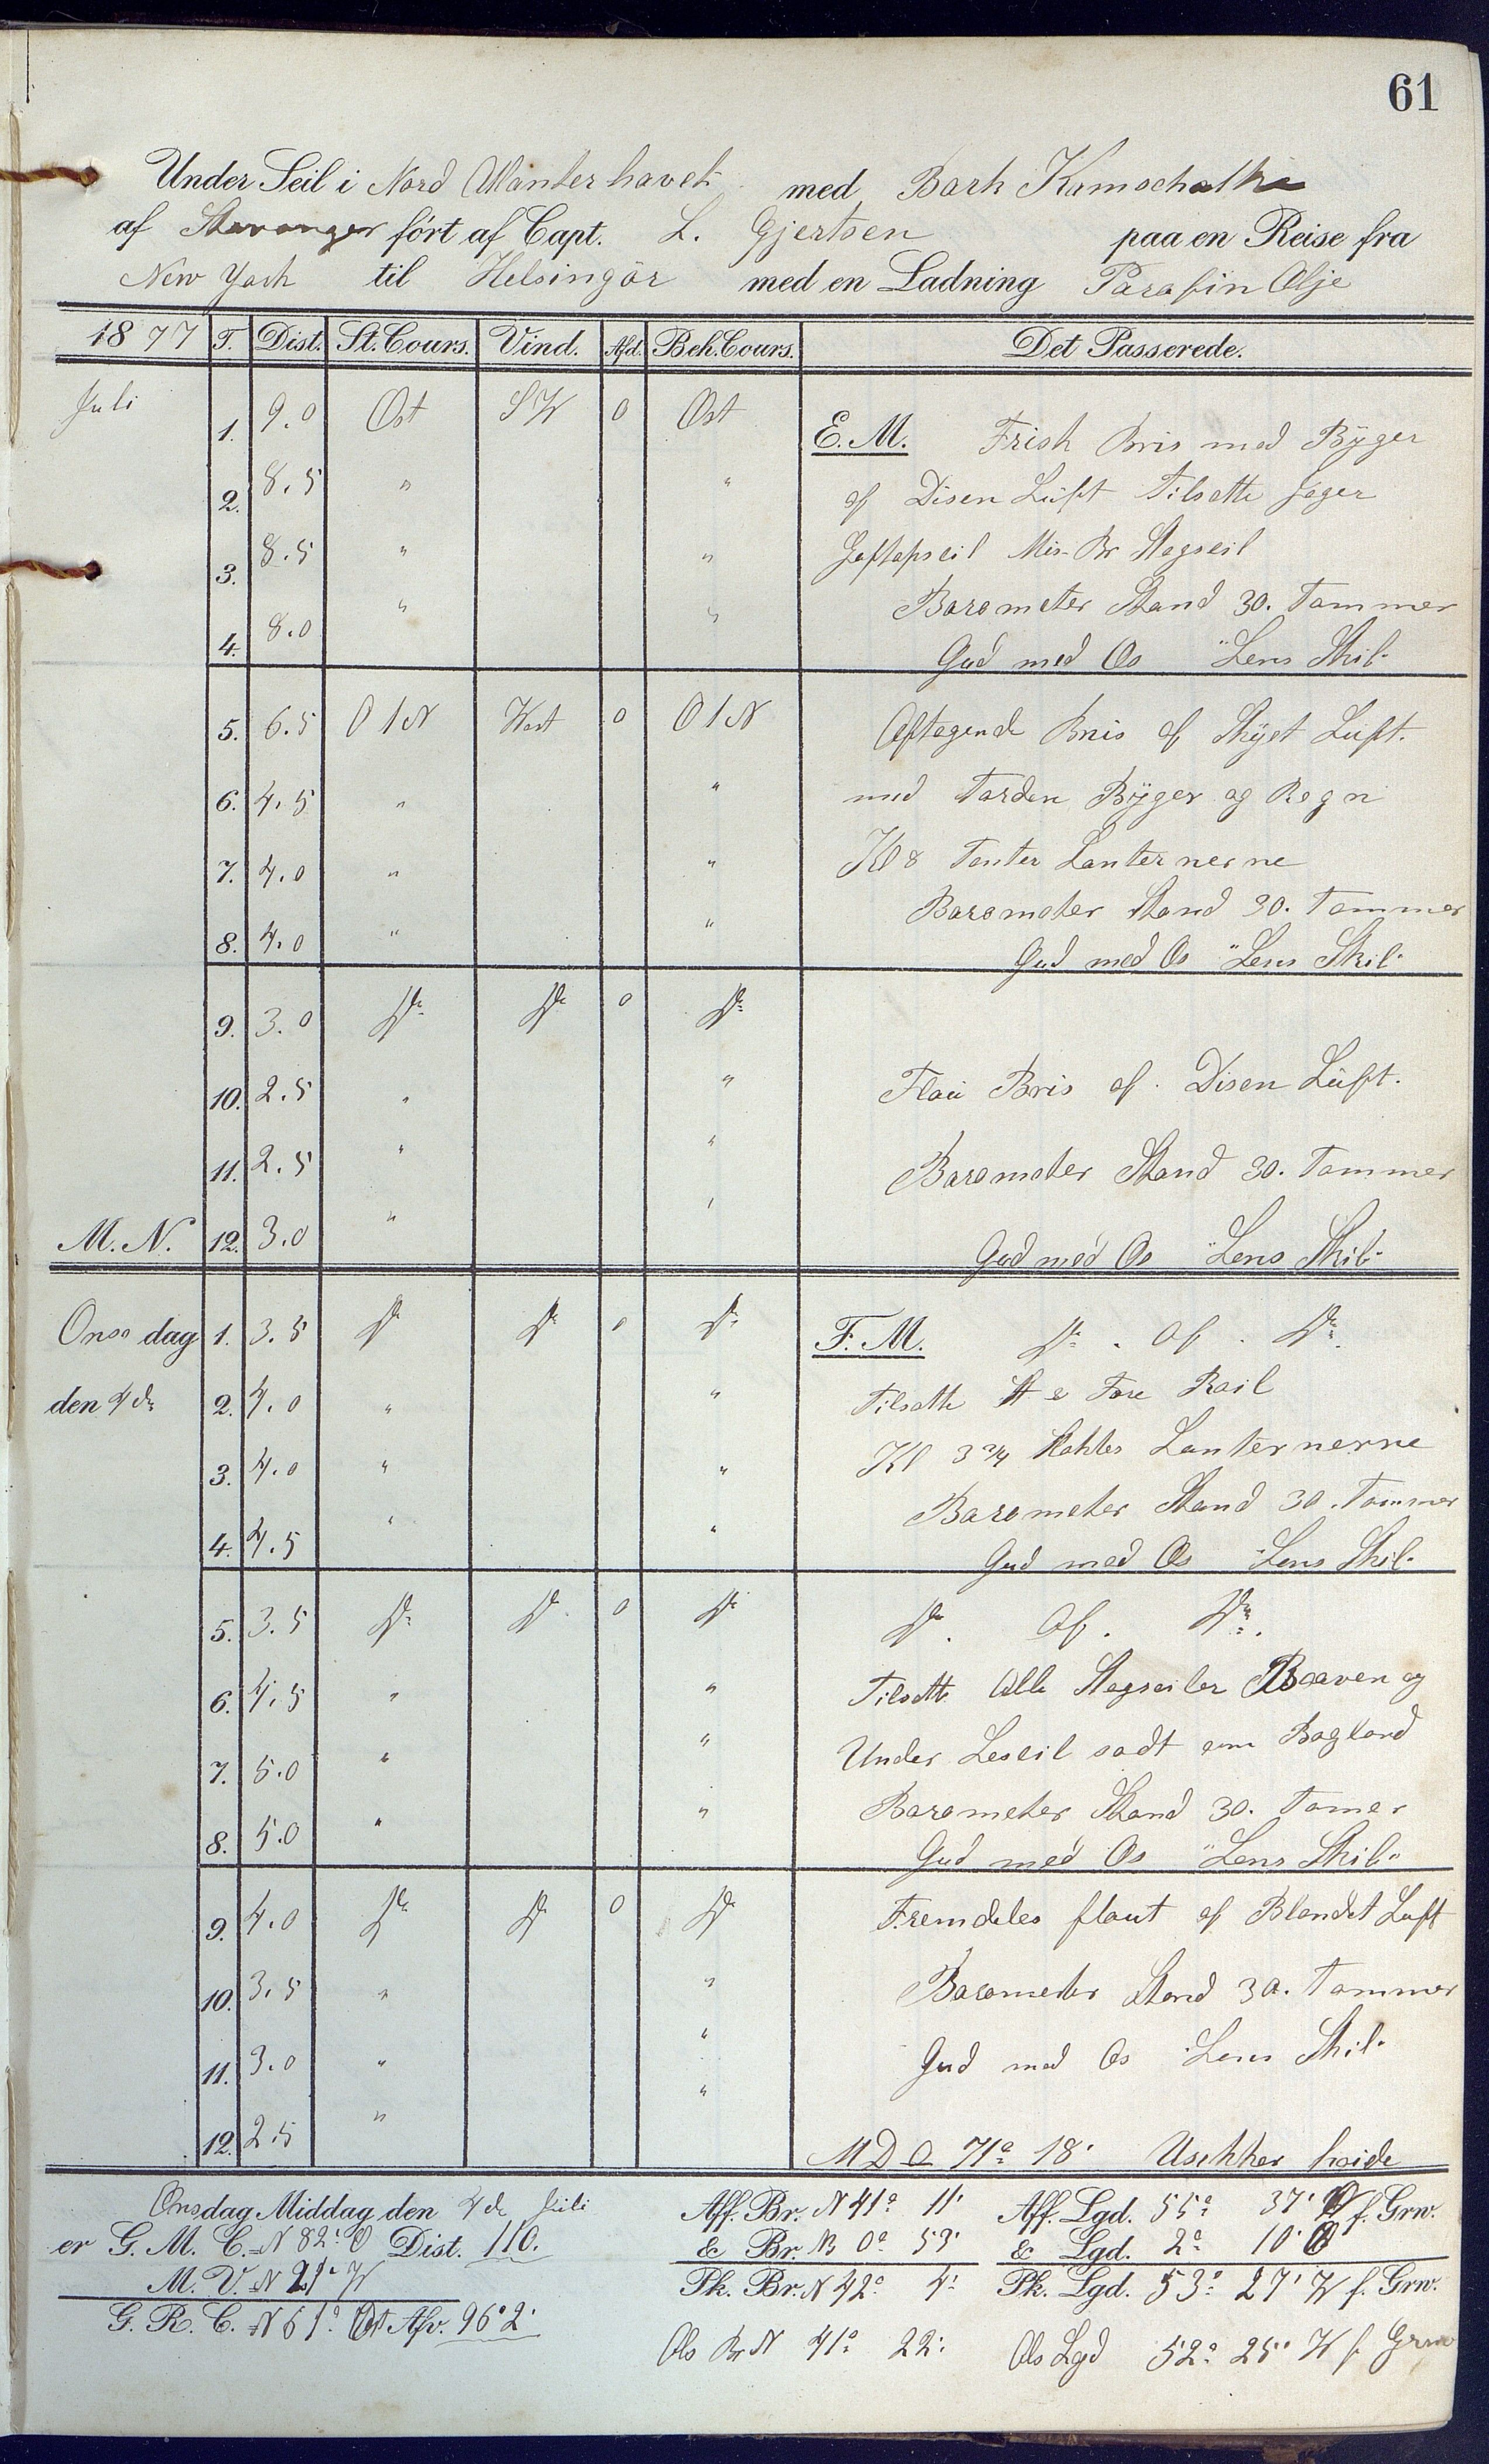 61
Under Seil i Nord Atlanter havet med Bark Kamschatka
af Stavanger fört af Capt. L. Gjertsen paa en Reise fra
New York til Helsingör med en Ladning Parafin Olje
1877 T. Dist. St. Cours. Vind. Afd. Beh. Cours. Det Passerede.
Juli 1. 9.0 Ost SW 0 Ost E. M. Frisk Bris med Byger
2. 8.5 " " af Disen Luft Tilsatte Jager
3. 8.5 " " Gaftopseil Mis. Br Stagseil
Barometer Stand 30. Tommer
4. 8.0 " " Gud med Os "Lens Skib"
5. 6.5 O 1 N West 0 O 1 N Aftagende Bris af Skyet Luft.
6. 4.5 " " med Torden Byger og Regn
7. 4.0 " " Kl 8 Tenter Lanternerne
Barometer Stand 30. Tommer
8. 4.0 " " Gud med Os "Lens Skib"
9. 3.0 Do Do 0 Do
10. 2.5 " " Flau Bris af Disen Luft.
11. 2.5 " " Barometer Stand 30. Tommer
M. N. 12. 3.0 " " Gud med Os "Lens Skib"
Onsdag 1. 3.5 Do Do 0 Do F. M. Do. af. Do.
den 4de 2. 4.0 " " Tilsatte St & Fore
3. 4.0 " " Kl 3 3/4 Lanternerne
Barometer Stand 30. Tommer
4. 4.5 " " Gud med Os "Lens Skib"
5. 3.5 Do Do 0 Do Do. Af. Do.
6. 4.5 " " Tilsatte Alle Stagseiler og
7. 5.0 " " Under Leseil sadt om Bagbord
Barometer Stand 30. Tomer
8. 5.0 " " Gud med Os "Lens Skib"
9. 4.0 Do Do 0 Do Fremdeles flaut af Blandet Luft
10. 3.5 " " Barometer Stand 30. Tommer
11. 3.0 " " Gud med Os "Lens Skib"
12. 2.5 " " 71° 18' hoide
Onsdag Middag den 4de Juli Aff. Br. N 41° 11' Aff. Lgd. 55° 37' W f. Grw.
er G. M. C. N 82° O Dist. 110. & Br. N 0° 53' & Lgd. 2° 10' O
M. V. N 21° W Pk. Br. N 42° 4' Pk. Lgd. 53° 27' W f. Grw.
G. R. C. N 61° Ost Afv. 96' 2'
Obs Br N 41° 22' Obs Lgd 52° 25' W f Grw